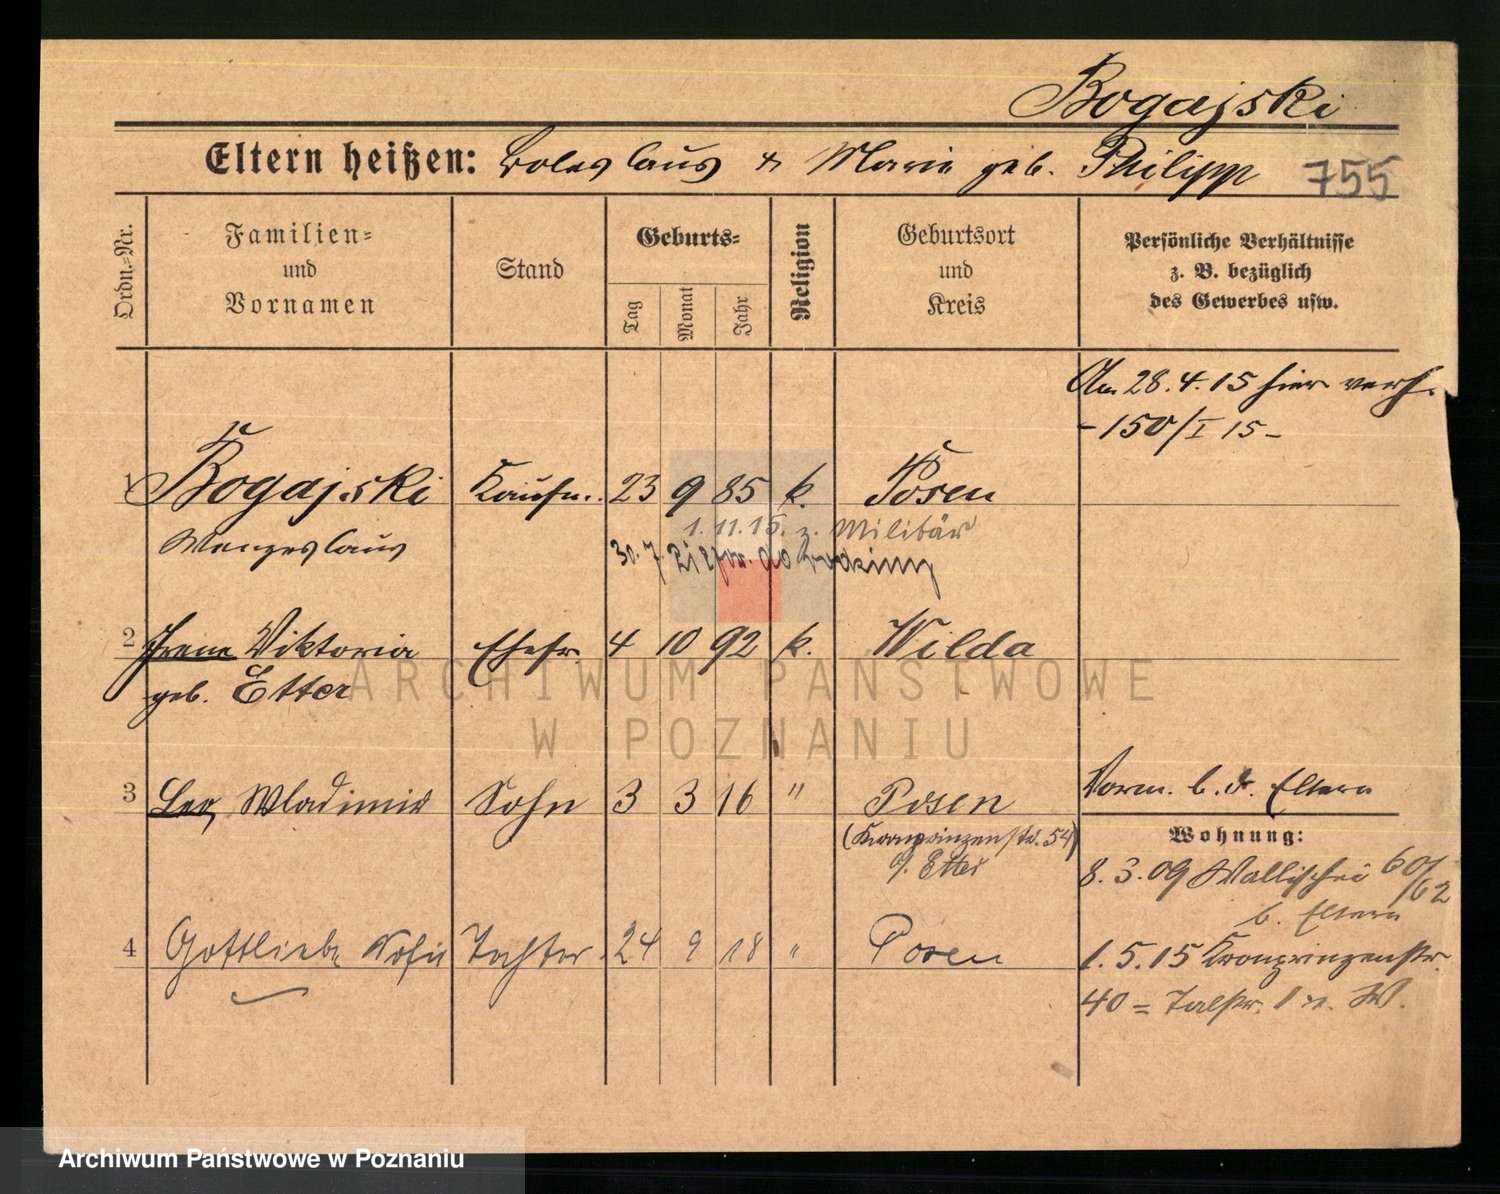 Bogajski
Eltern heißen: Boleslaus & Marie geb. Philipp 755
Ordn.-Nr.
Familien-
und
Vornamen
Stand
Geburts-
Tag
Monat
Jahr
Religion
Geburtsort
und
Kreis
Persönliche Verhältnisse
z. B. bezüglich
des Gewerbes usw.
Am 28.4.15 hier verh.
-150/I 15-
1 Bogajski Kaufm. 23 9 85 k. Posen
Wenzeslaus
1.11.15. z. Militär
30. 7.
2 Irene Viktoria Ehefr. 4 10 92 k. Wilda
geb. Etter
3 Leo Wladimir Sohn 3 3 16 " Posen
(Kronprinzenstr. 54)
b. Etter
Vorm. b. d. Eltern
Wohnung:
8.3.09 Wallischei 60/62
b. Eltern
4 Gottliebe Sofie Tochter 24 9 18 " Posen
1.5.15 Kronprinzenstr.
40 = Talstr. 1 n. W.
ARCHIWUM PAŃSTWOWE
W POZNANIU
Archiwum Państwowe w Poznaniu